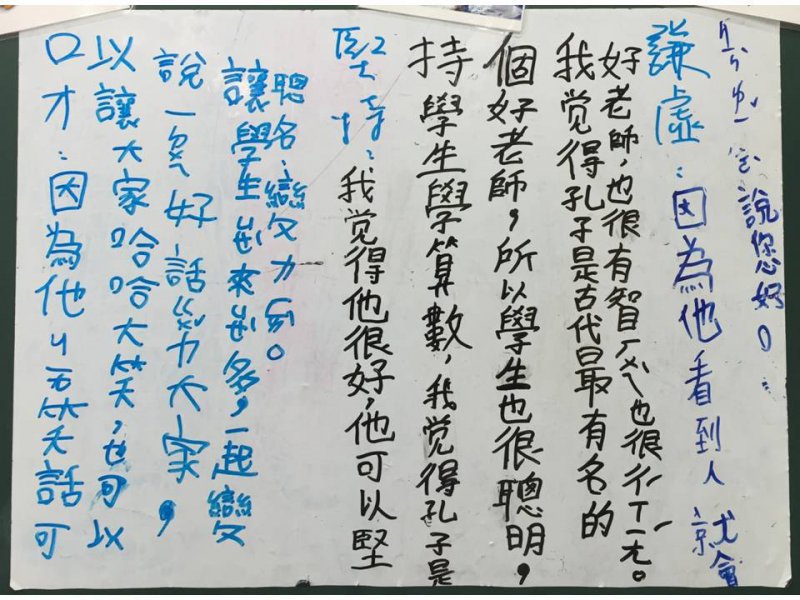 口才：因為他ㄐ笑話可
以讓大家哈哈大笑，也可以
說一ㄒ好話ㄍ力大家，
讓學生越來越多，一起變
聰名，變
堅持：我觉得他很好，他可以堅
持學生學算數，我觉得孔子是
個好老師，所以學生也很聰明，
我觉得孔子是古代最有名的
好老師，也很有智ㄏㄨㄟˋ也很
謙虛：因為他看到人就會
說您好。